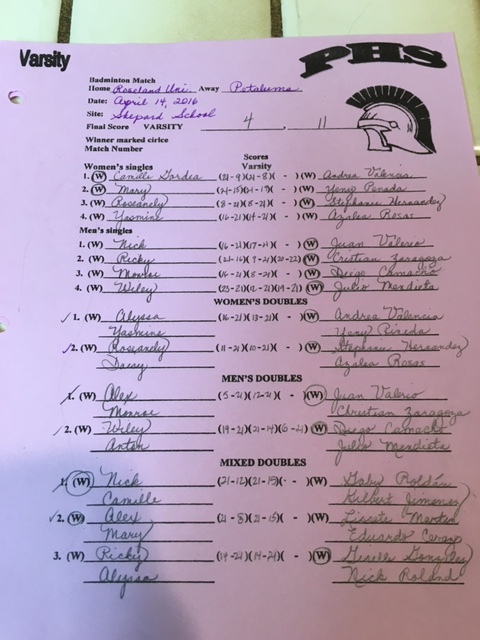 Varsity
PHS
Badminton Match
Home Roseland Uni. Away Petaluma
Date: April 14, 2016
Site: Shepard School
Final Score VARSITY 4 , 11
Winner marked cirlce
Match Number
Scores
Women's singles Varsity
1. (W) Camille Gordea (21-9)(21-8)( - )(W) Andrea Valencia
2. (W) Mary (21-15)(21-17)( - )(W) Yeny Paneda
3. (W) Roseanely (8-21)(8-21)( - )(W) Stephanie Hernandez
4. (W) Yasmine (16-21)(14-21)( - )(W) Azalea Rosas
Men's singles
1. (W) Nick (16-21)(17-21)( - )(W) Juan Valerio
2. (W) Ricky (21-16)(9-21)(20-22)(W) Cristian Zaragoza
3. (W) Monroe (16-21)(5-21)( - )(W) Diego Camacho
4. (W) Wiley (23-21)(12-21)(19-21)(W) Julio Mendieta
WOMEN'S DOUBLES
1. (W) Alyssa (16-21)(13-21)( - )(W) Andrea Valencia
Yasmine Yeny Pineda
2. (W) Roseanely (11-21)(10-21)( - )(W) Stephany Hernandez
Azalea Rosas
MEN'S DOUBLES
1. (W) Alex (5-21)(12-21)( - )(W) Juan Valerio
Monroe Christian Zaragoza
2. (W) Wiley (19-21)(21-14)(6-21)(W) Diego Camacho
Anton Julio Mendieta
MIXED DOUBLES
1. (W) Nick (21-12)(21-15)( - )(W) Gaby Roldán
Camille Gilbert Jimenez
2. (W) Alex (21-8)(21-15)( - )(W) Lissete Martin
Mary Eduardo
3. (W) Ricky (19-21)(14-21)( - )(W) Giselle Gonzalez
Alyssa Nick Roland